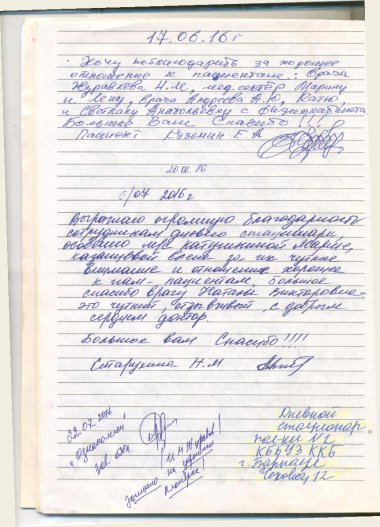 17.06.16 г
Хочу поблагодарить за хорошее
отношение к пациентам: Врача
Журавлева Н.М, мед.сестёр Марину
и Лену, врача Андреева А.Ю, Катю,
и Светлану Анатольевну с физиокабинета
Большое Вам Спасибо !!!
Пациент Кузьмин Е.А
20.06.16
/07 2016 г
Выражаю огромную благодарность
сотрудникам дневного стационара,
особенно м/с Марине,
за их чуткое
внимание и отношение хорошее
к нам - пациентам, большое
спасибо врачу Наталье Викторовне-
это чуткий, отзывчивый, с добрым
сердцем доктор.
Большое вам Спасибо !!!!
Старухина Н.М
22.07.2016
зав. отд.
Дневной
стационар
пол-ки №2
КГБУЗ ККБ
г. Барнаул